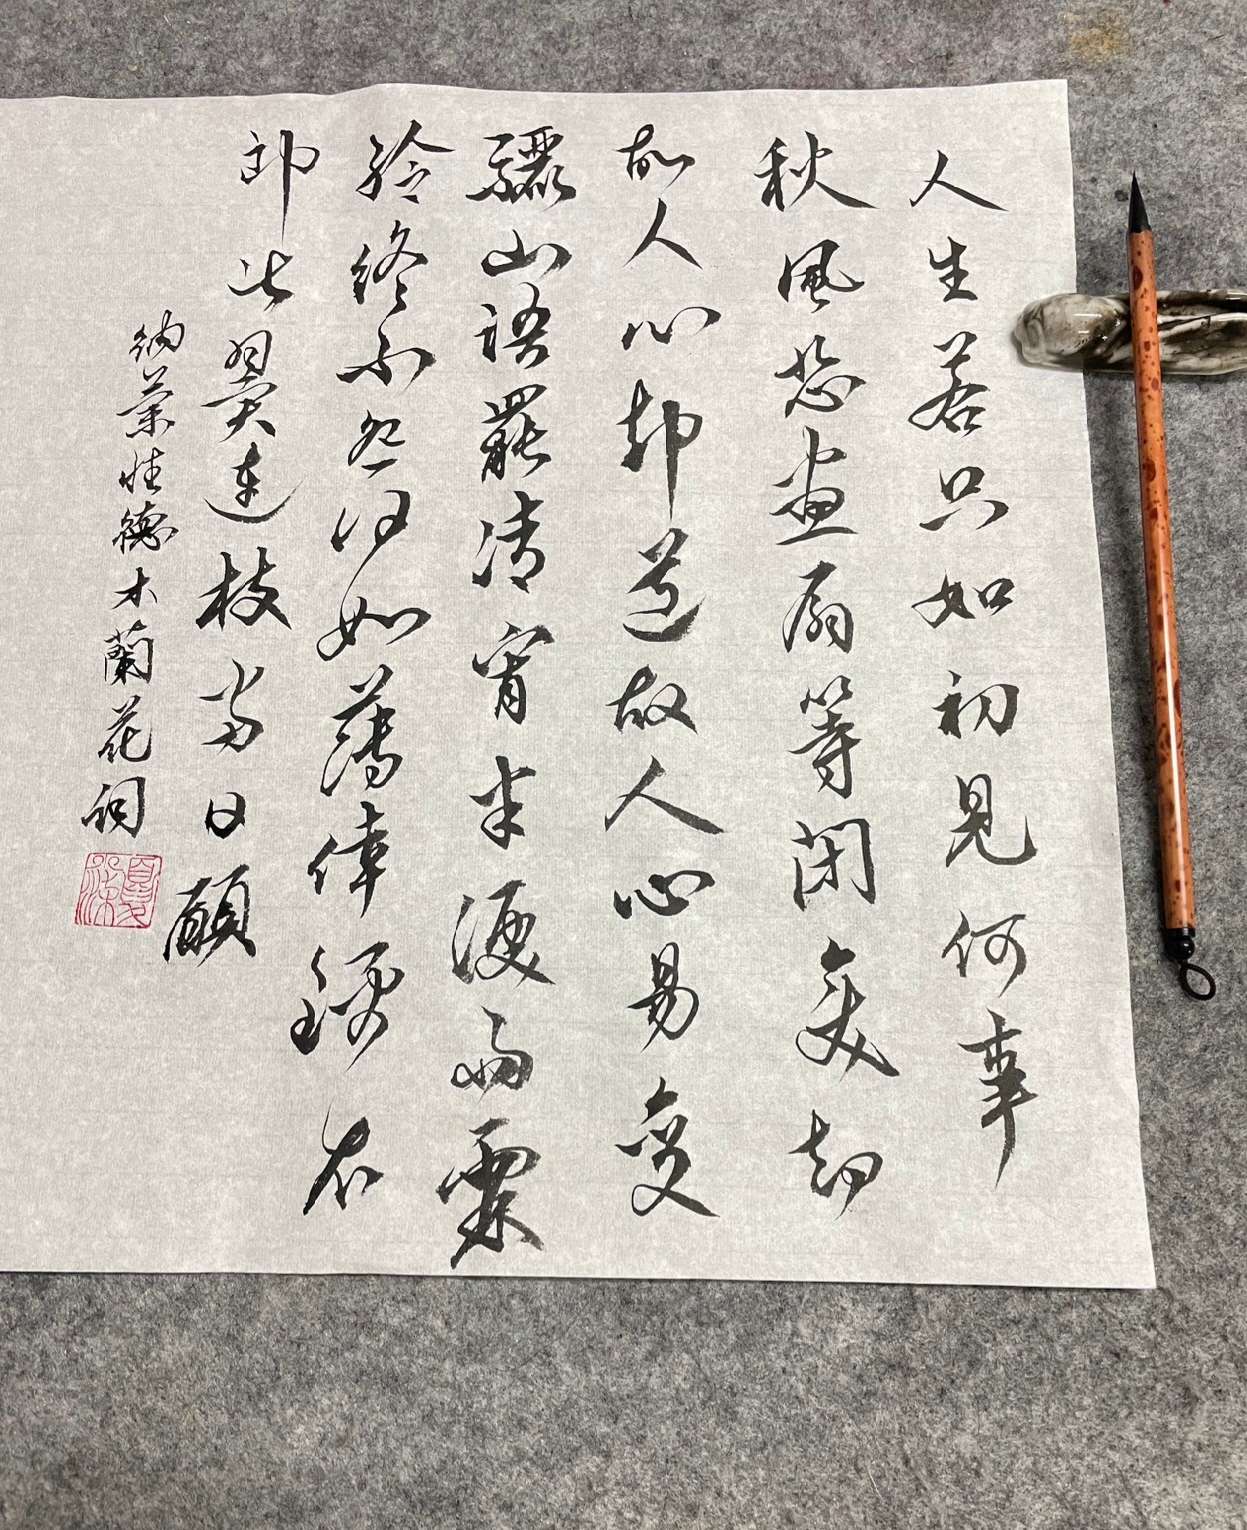 人生若只如初見何事
秋風悲畫扇等閑變却
故人心却道故人心易變
驪山語罷清宵半淚雨霖
鈴終不怨何如薄倖錦衣
郎比翼連枝當日願
納蘭性德木蘭花詞